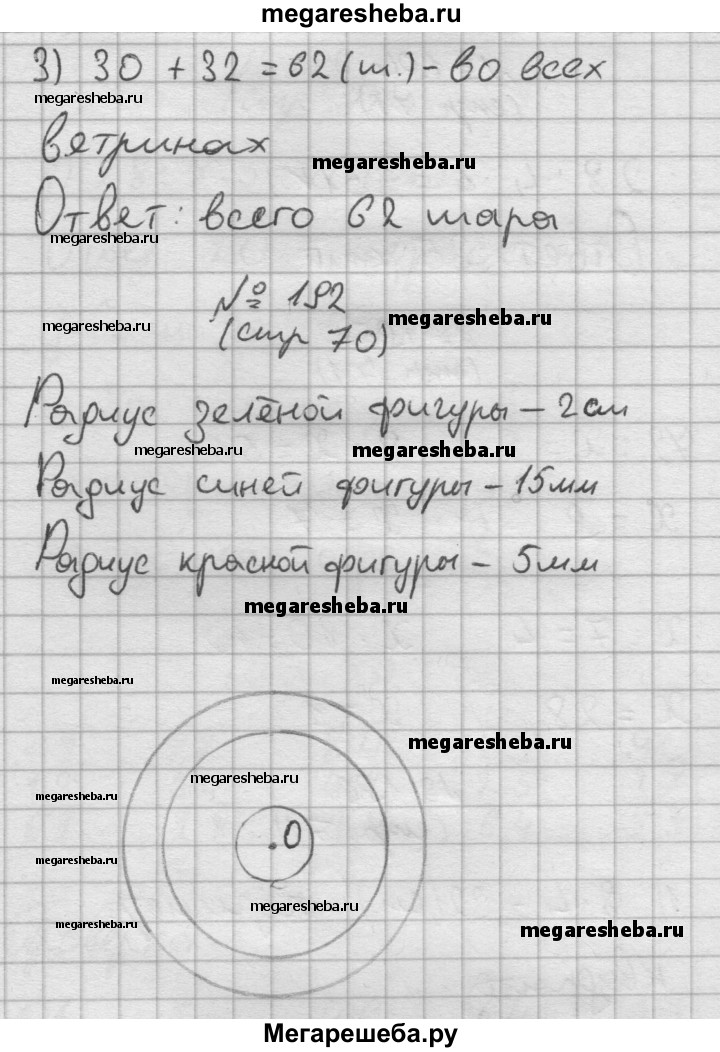 megaresheba.ru
3) 30 + 32 = 62 (ш.) - во всех
megaresheba.ru
ветринах
megaresheba.ru
Ответ: всего 62 шары
megaresheba.ru
№ 192
megaresheba.ru
megaresheba.ru
(стр 70)
Радиус зелёной фигуры - 2см
megaresheba.ru
megaresheba.ru
Радиус синей фигуры - 15мм
Радиус красной фигуры - 5мм
megaresheba.ru
megaresheba.ru
megaresheba.ru
megaresheba.ru
megaresheba.ru
О
megaresheba.ru
megaresheba.ru
megaresheba.ru
megaresheba.ru
Мегарешеба.ру